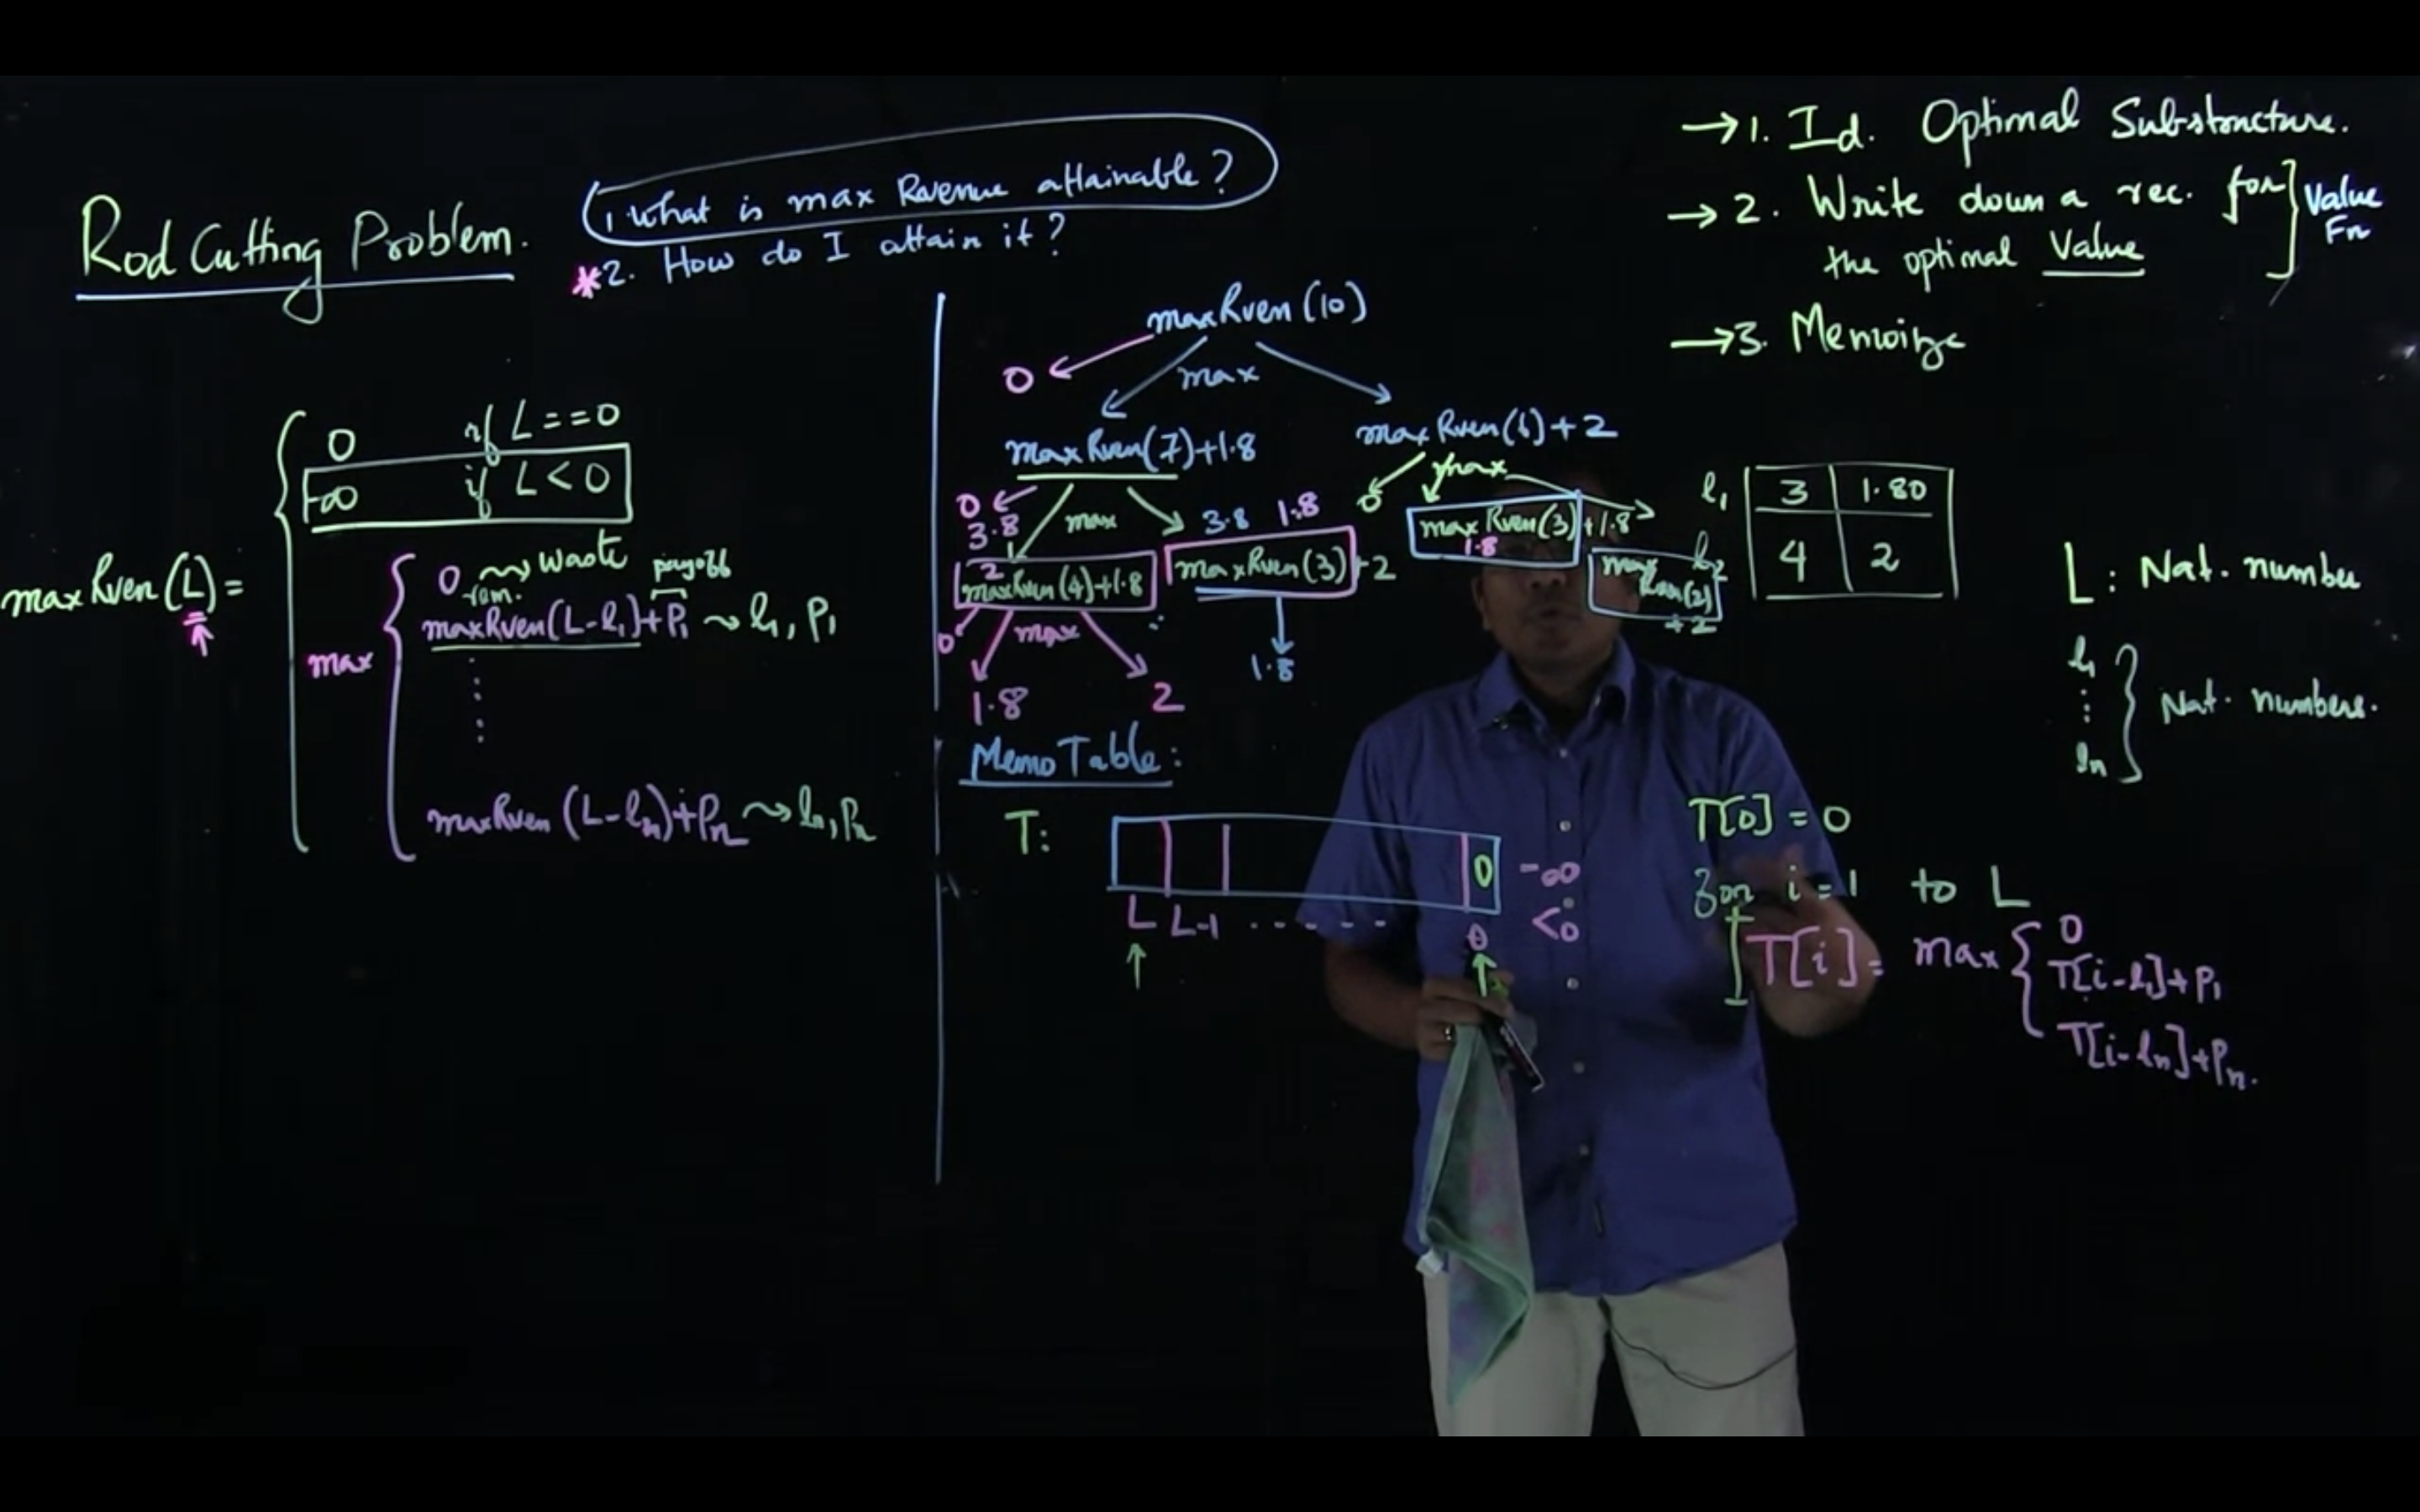 Rod Cutting Problem.
1. What is max Revenue attainable?
*2. How do I attain it?
→ 1. Id. Optimal Substructure.
→ 2. Write down a rec. for
the optimal Value
Value
Fn
→ 3. Memoize
maxRven(L) =
0 if L==0
-∞ if L<0
max
0 ⇝ Waste
rem. payoff
maxRven(L-l₁)+P₁ ⇝ l₁, P₁
maxRven(L-lₙ)+Pₙ ⇝ lₙ, Pₙ
maxRven(10)
0 max
maxRven(7)+1.8 maxRven(6)+2
0 max 0 max
3.8 3.8 1.8
2
maxRven(4)+1.8 maxRven(3)+2 maxRven(3)+1.8
1.8
maxRven(2)
+2
0 max
1.8 2 1.8
l₁ 3 1.80
l₂ 4 2
L : Nat. number
l₁
⋮
lₙ
Nat. numbers.
Memo Table:
T: 0 -∞
L L-1 - - - - - - 0 <0
T[0] = 0
for i=1 to L
T[i] = max
0
T[i-l₁]+P₁
T[i-lₙ]+Pₙ.